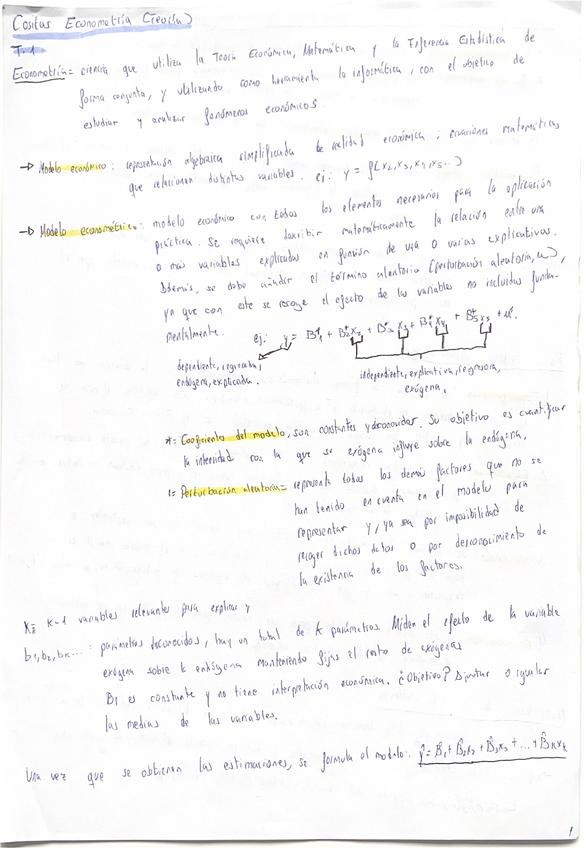 Cositas Econometría (Teoría)
T-1
Econometría = ciencia que utiliza la Teoría Económica, Matemática y la Inferencia Estadística de
forma conjunta, y utilizando como herramienta la informática, con el objetivo de
estudiar y analizar fenómenos económicos.
→ Modelo económico: representación algebraica simplificada de realidad económica; ecuaciones matemáticas
que relacionan distintas variables. ej: y = f(x2, x3, x4, x5...)
→ Modelo econométrico: modelo económico con todos los elementos necesarios para la aplicación
práctica. Se requiere describir matemáticamente la relación entre una
o más variables explicadas en función de una o varias explicativas.
Además, se debe añadir el término aleatorio (perturbación aleatoria, u)
ya que con este se recoge el efecto de las variables no incluidas funda-
mentalmente.
ej: y = B*1 + B*2x2 + B*3x3 + B*4x4 + B*5x5 + u!
dependiente, regresada,
endógena, explicada.
independiente, explicativa, regresora,
exógena.
*= Coeficiente del modelo, son constantes y desconocidos. Su objetivo es cuantificar
la intensidad con la que se exógena influye sobre la endógena.
!= Perturbación aleatoria = representa todos los demás factores que no se
han tenido en cuenta en el modelo para
representar y, ya sea por imposibilidad de
recoger dichos datos o por desconocimiento de
la existencia de los factores.
K-1 variables relevantes para explicar y
b1, b2, bk...: parámetros desconocidos, hay un total de k parámetros. Miden el efecto de la variable
exógena sobre la endógena manteniendo fijas el resto de exógenas
B1 es constante y no tiene interpretación económica. ¿Objetivo? Ajustar o igualar
las medias de las variables.
Una vez que se obtienen las estimaciones, se formula el modelo: ŷ = B̂1 + B̂2x2 + B̂3x3 + ... + B̂kxk
1